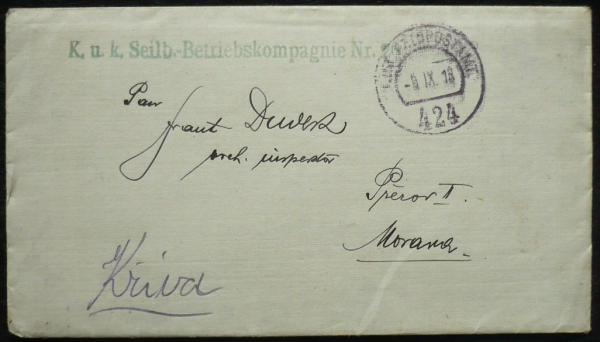 K. u. k. Seilb.-Betriebskompagnie Nr.
K.u.K. FELDPOSTAMT
-6 IX. 18
424
Pan
Frant
arch. inspektor
Přerov II.
Morava
Křivá